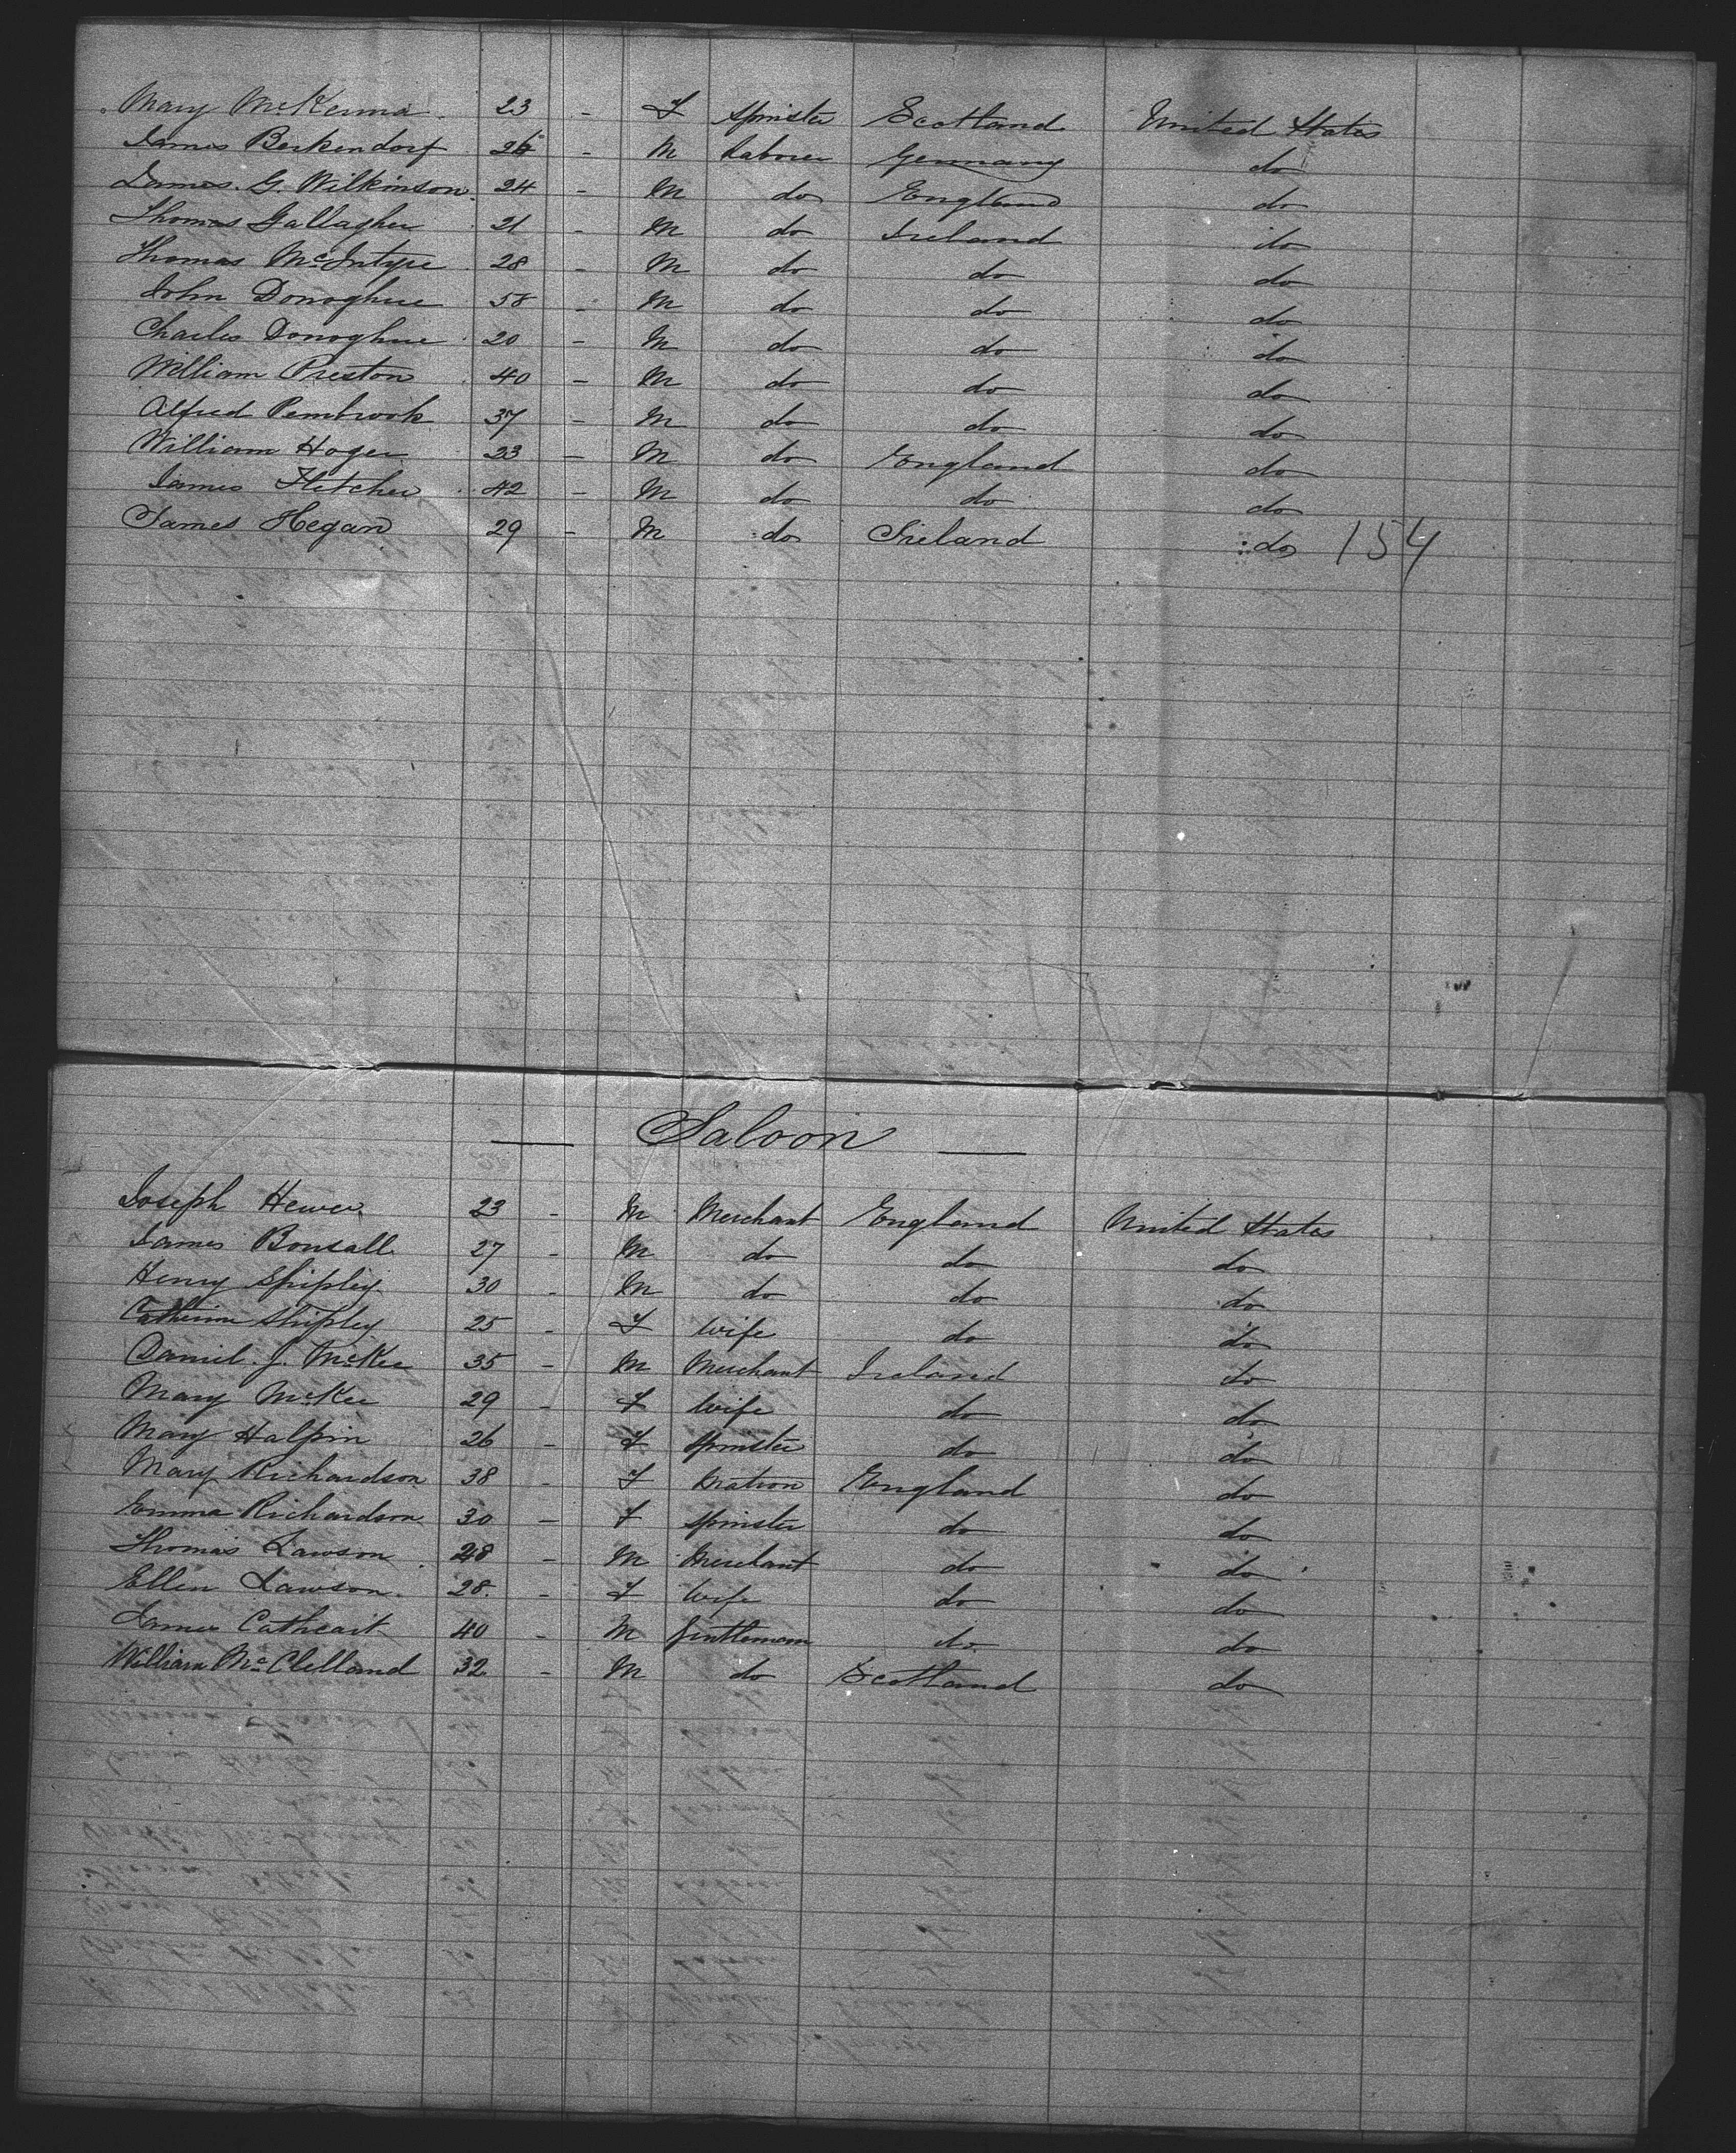 Mary McKenna 23 - F Spinster Scotland United States
James Berkendorf 26 - M Laborer Germany do
James. G. Wilkinson 24 - M do England do
Thomas Gallagher 21 - M do Ireland do
Thomas McIntyre 28 - M do do do
John Donoghue 58 - M do do do
Charles Donoghue 20 - M do do do
William Preston 40 - M do do do
Alfred Pembrook 37 - M do do do
William Hoger 23 - M do England do
James Fletcher 42 - M do do do
James Hegan 29 - M do Ireland do 154
Saloon
Joseph Hewer 23 - M Merchant England United States
James Bonsall 27 - M do do do
Henry Shipley 30 - M do do do
Catherine Shipley 25 - F Wife do do
Daniel. J. McKee 35 - M Merchant Ireland do
Mary McKee 29 - F Wife do do
Mary Halpin 26 - F Spinster do do
Mary Richardson 38 - F Matron England do
Emma Richardson 30 - F Spinster do do
Thomas Lawson 28 - M Merchant do do
Ellen Lawson 28 - F Wife do do
James Cathcart 40 - M Gentleman do do
William McClelland 32 - M do Scotland do